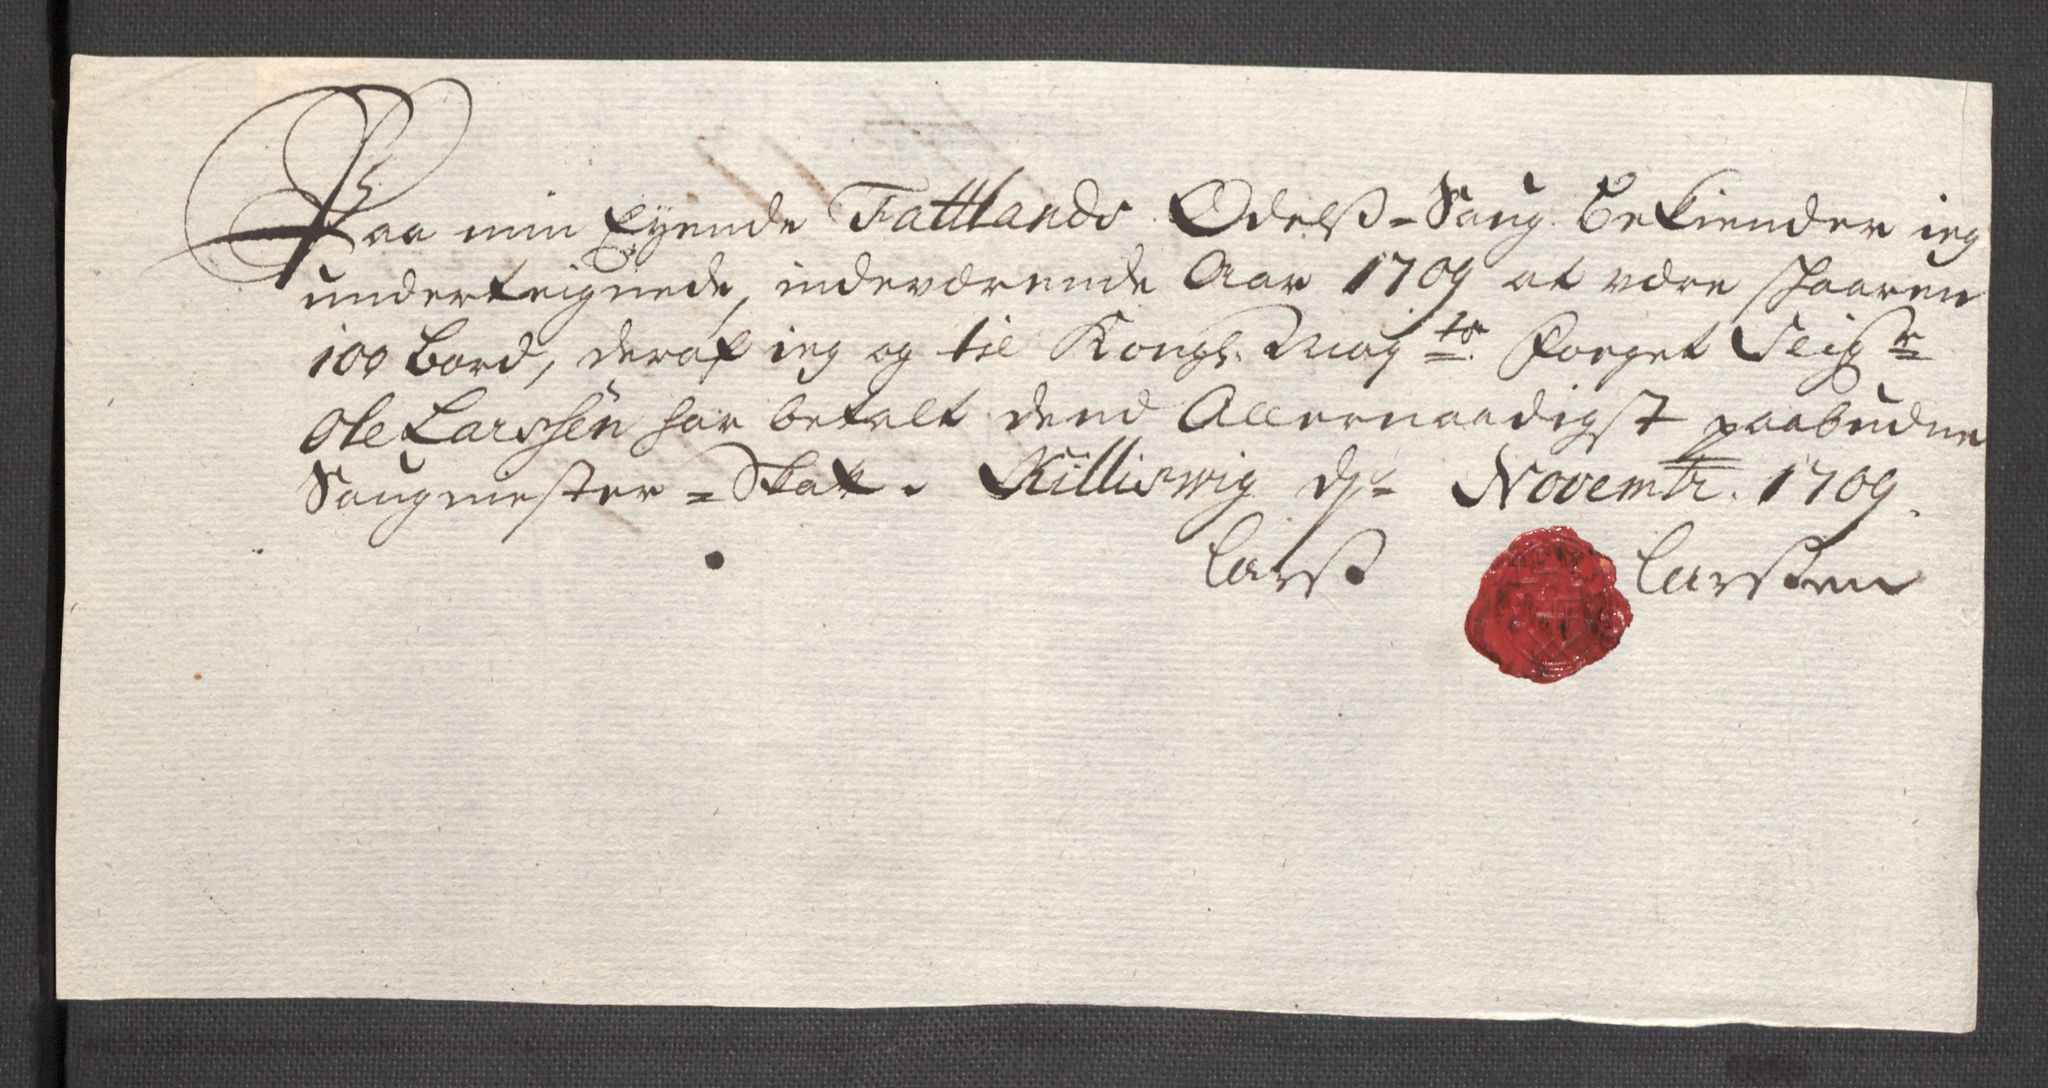 Paa min Eyende Fattlands Odelß-Saug bekiender ieg
underteignede, indeværende Aar 1709 at være skaaren
100 Bord, deraf ieg og til Kongl. May:ts Foeget Seigr.
Ole Larssen har betalt dend Allernaadigst paabudne
Saugmester-Skat. Killiswig d: Novembr. 1709.
Larß Larssen